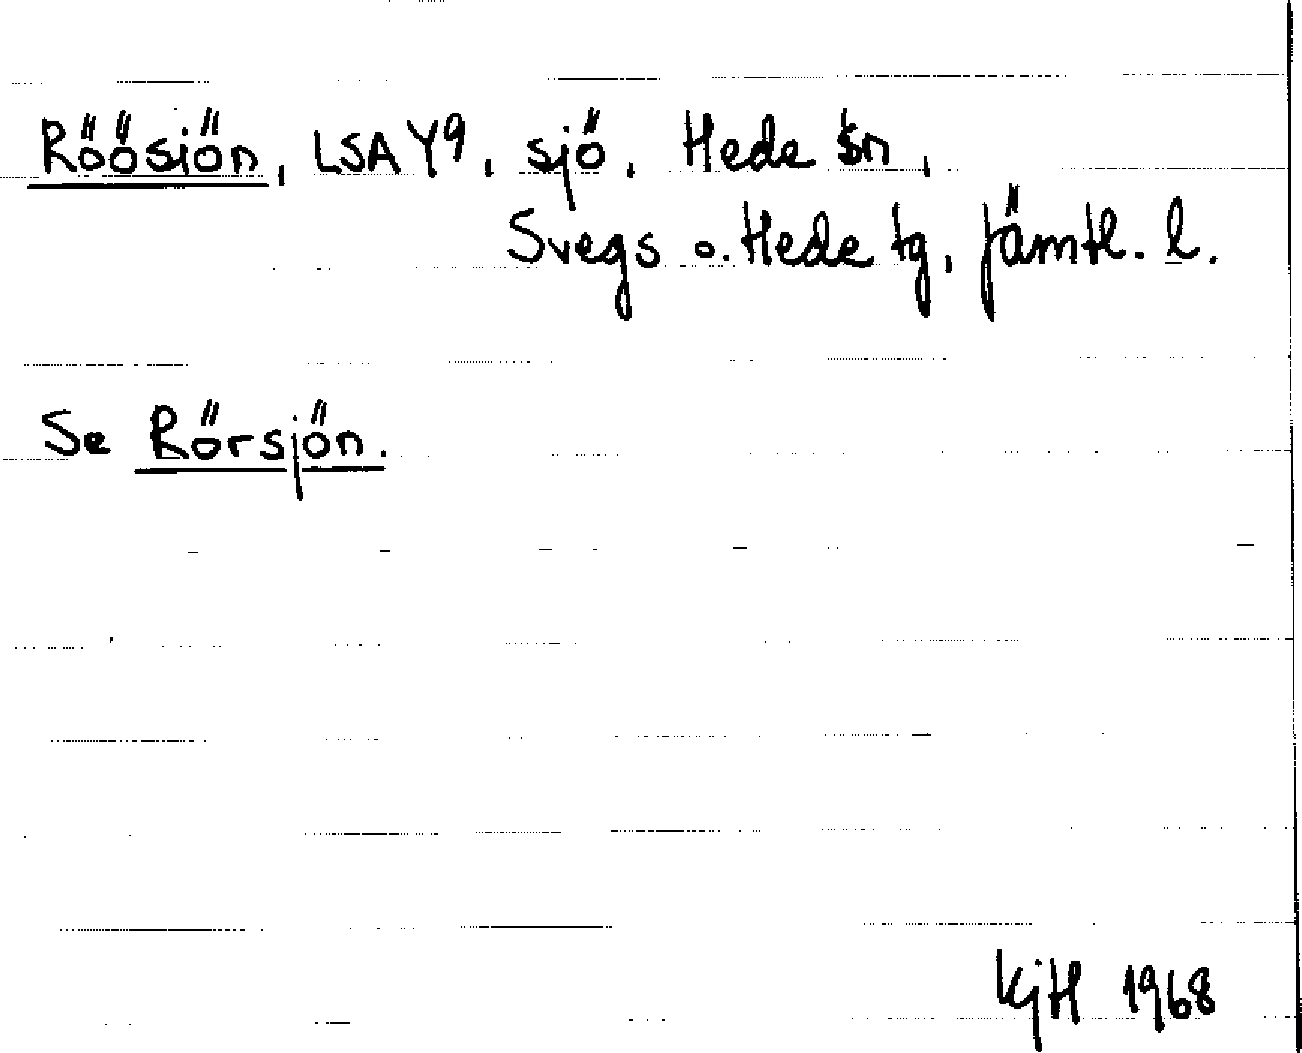 Röösjön, LSA Y9, sjö, Hede sn,
Svegs o. Hede tg, Jämtl. l.
Se Rörsjön.
KjH 1968